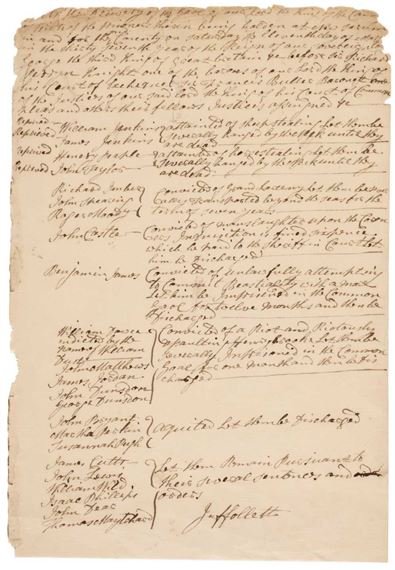 At the Delivery of the Gaol of our Lord the King of the County
of the
and for the County on Saturday the Eleventh day of
in the thirty Seventh year of the Reign of our Sovereign Lord
George the third King of Great Britain &c before Sir Richard
Perryn Knight one of the Barons of our Lord the King of
his Court of Exchequer Sir Francis Buller Baronet one
of the Justices of our said Lord the King of his Court of Common
Pleas and others their fellows Justices assigned &c
Reprieved William Jenkins attainted of sheep stealing Let them be
Reprieved James Jenkins severally hanged by the Neck until they
are dead
reprieved Henery people attainted of horse stealing Let them be
Reprieved John Taylor severally hanged by the Neck until they
are dead
Richard Imber Convicted of Grand Larceny Let them be sev
John Spearing erally transported beyond the Seas for the
Roger Hoddy term of Seven years
John Castle Convicted of manslaughter upon the Coron
ers Inquisition is fined sixpence
which he paid to the Sheriff in Court Let
him be Discharged
Benjamin James Convicted of unlawfully attempting
to Commit Beastiality with a mare
Let him be Imprisoned in the Common
Gaol for twelve months and then be
Discharged
William
indicted by the Convicted of a Riot and Riotously
name of William assaulting Let them be
John Matthews severally Imprisoned in the Common
James Jordan Goal for one month and then be Dis
John Funsdon charged
George Funsdon
John Bryant
Martha Perkin Aquited Let them be Discharged
Susannah Pugh
James Cutts
John Lewis Let them Remain Pursuant to
William Wild their Several sentences and
Isaac Phillips orders
John Dear
Thomas Maytchard Juffollett